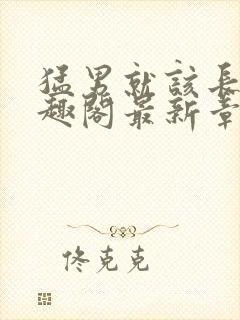 猛男就該長
趣閣最新章
佟克克